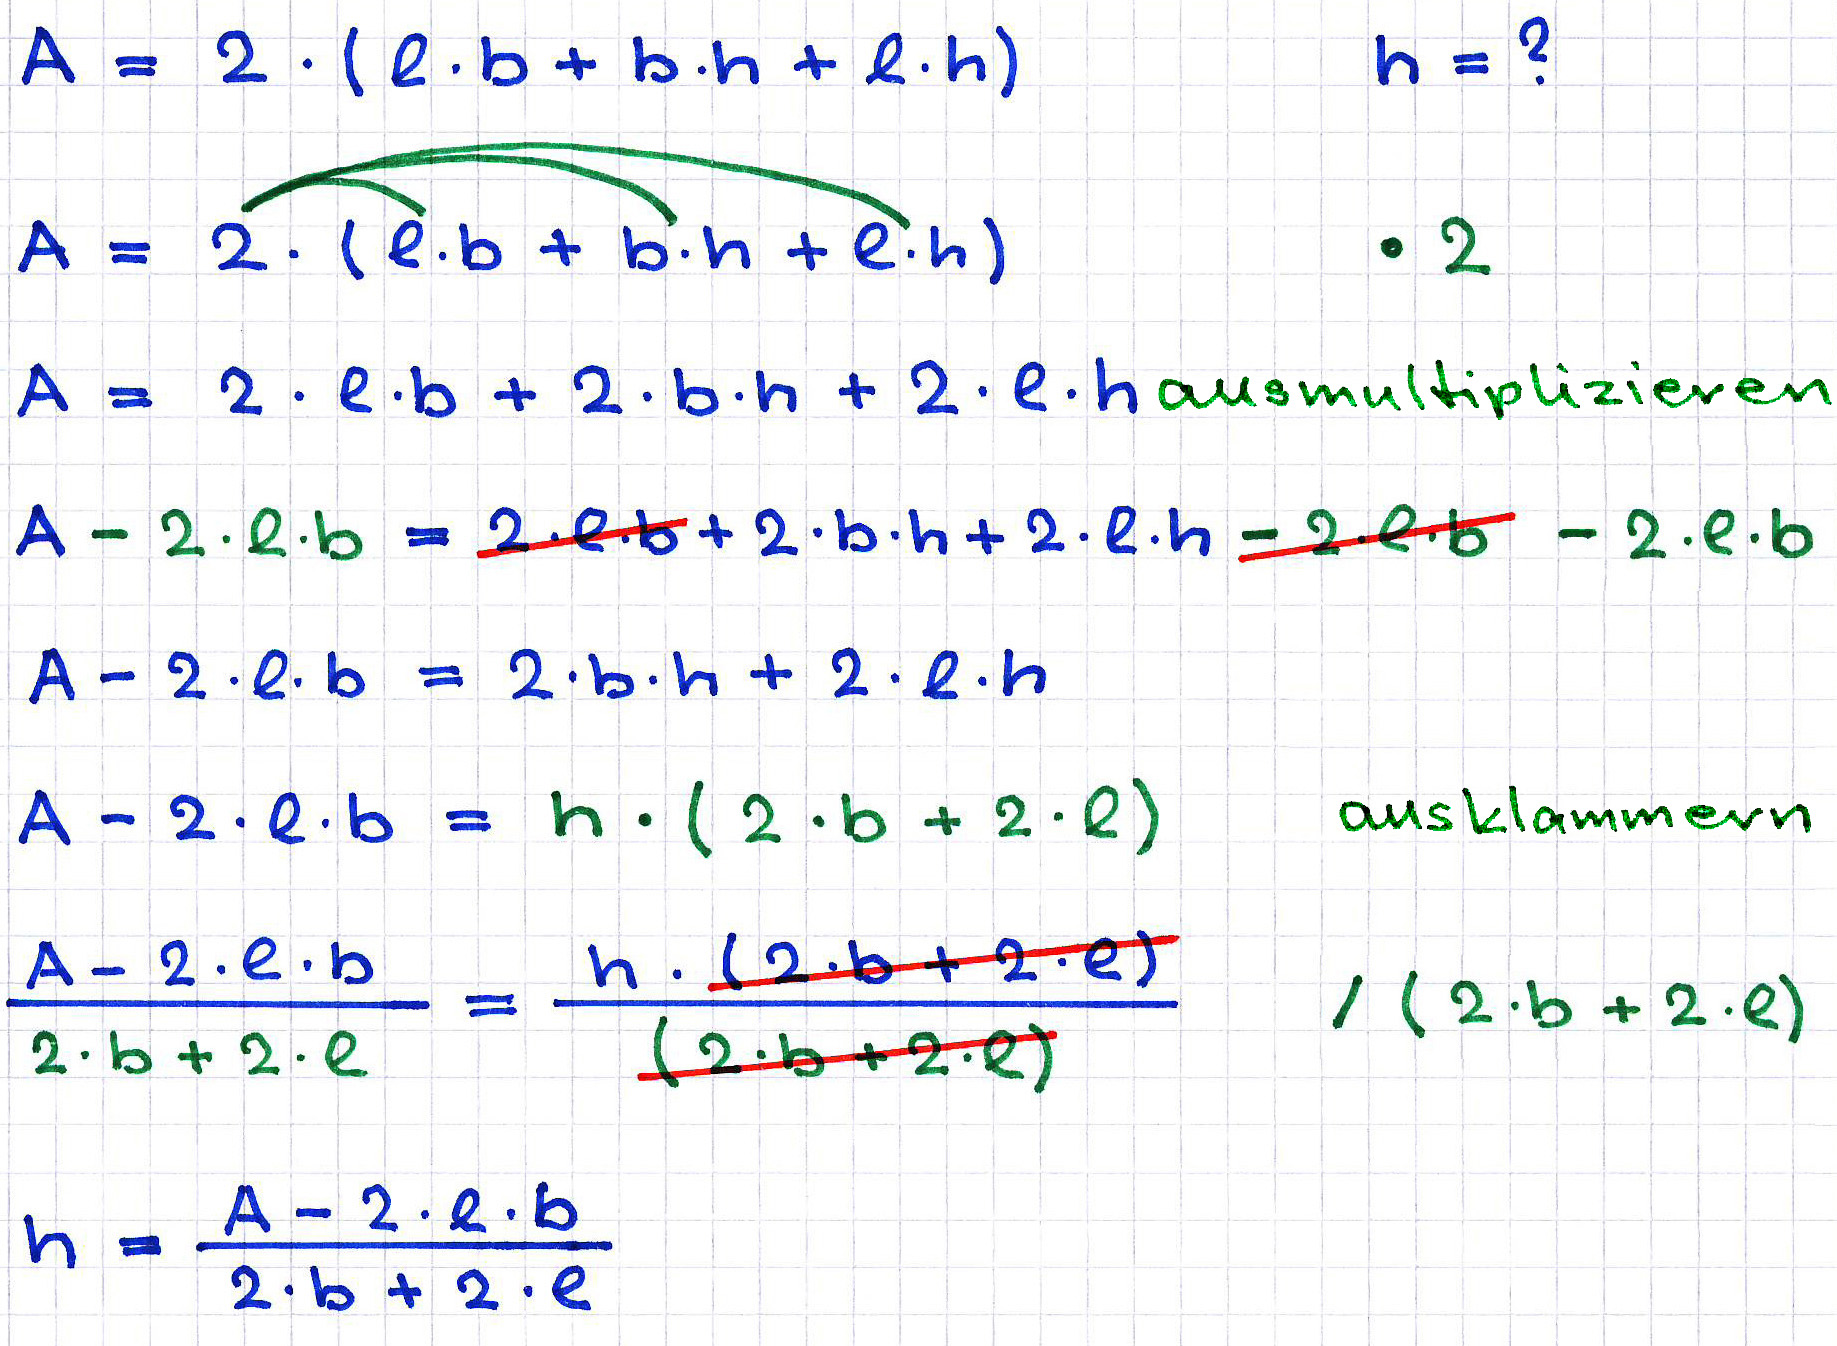 A = 2 · (l · b + b · h + l · h) h = ?
A = 2 · (l · b + b · h + l · h) · 2
A = 2 · l · b + 2 · b · h + 2 · l · h ausmultiplizieren
A - 2 · l · b = 2 · l · b + 2 · b · h + 2 · l · h - 2 · l · b - 2 · l · b
A - 2 · l · b = 2 · b · h + 2 · l · h
A - 2 · l · b = h · (2 · b + 2 · l) ausklammern
A - 2 · l · b h · (2 · b + 2 · l)
= / (2 · b + 2 · l)
2 · b + 2 · l (2 · b + 2 · l)
A - 2 · l · b
h =
2 · b + 2 · l